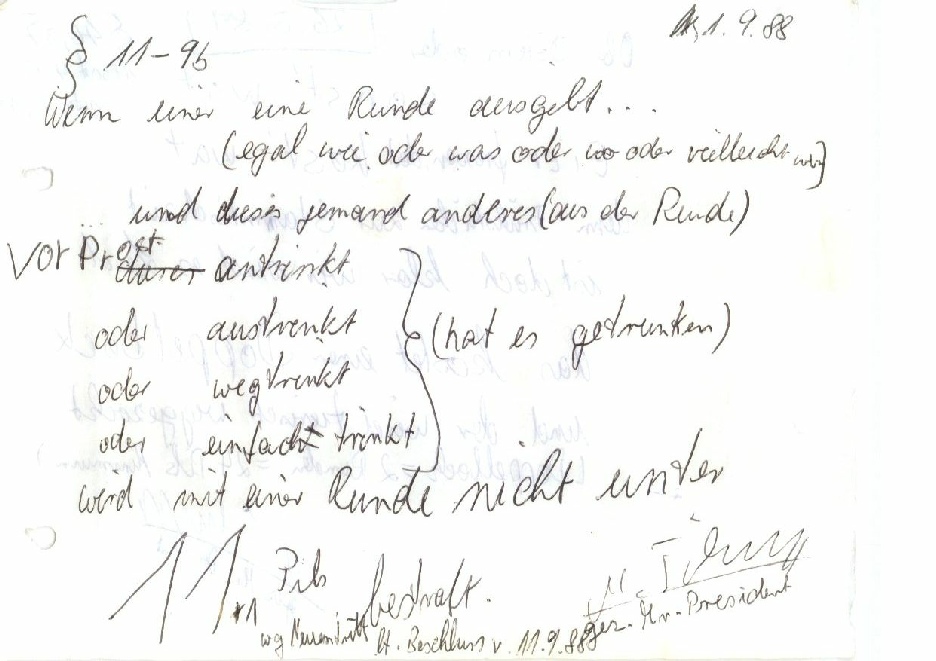 1.9.88
§ 11-96
Wenn einer eine Runde ausgebt...
(egal wie oder was oder wo oder vielleicht wer)
und dieses jemand anderes (aus der Runde)
Vor Prost antrinkt
oder austrinkt } (hat es getrunken)
oder wegtrinkt
oder einfach trinkt
wird mit einer Runde nicht unter
11 Pils bestraft.
+1 wg Neueintritt lt. Beschluss v. 11.9.88
gez. Präsident